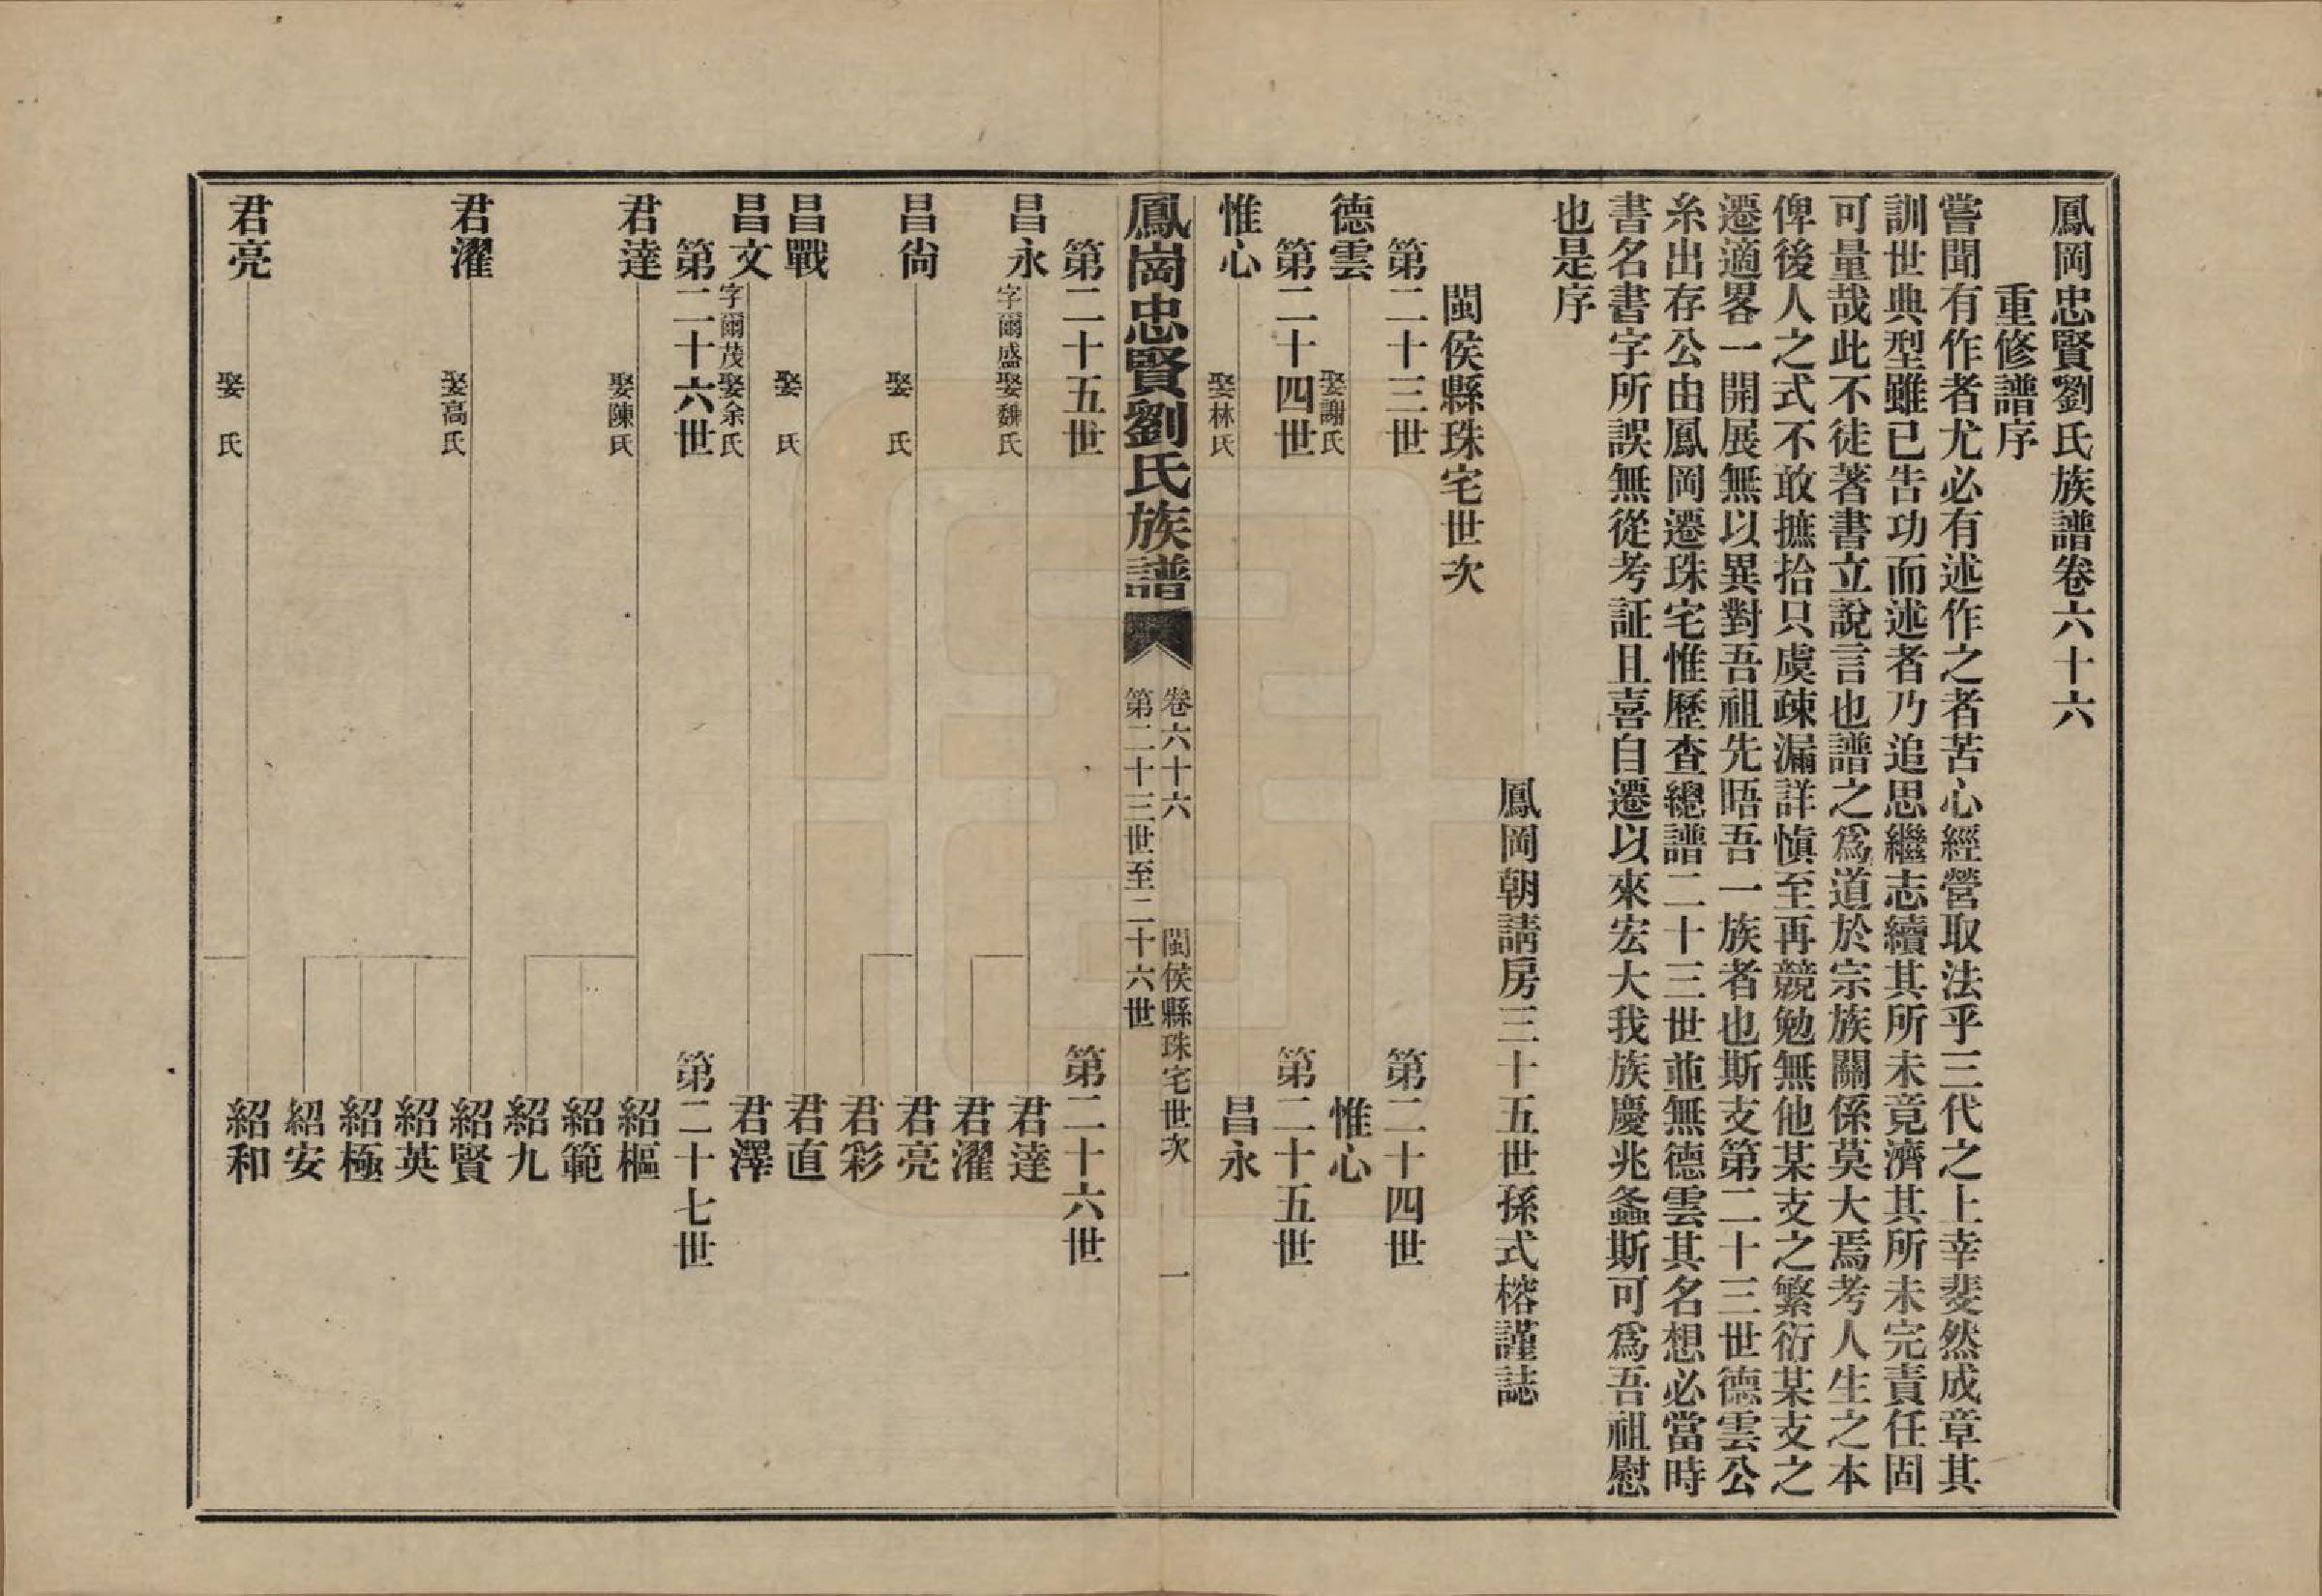 鳳岡忠賢劉氏族譜卷六十六
重修譜序
嘗聞有作者尤必有述作之者苦心經營取法乎三代之上幸斐然成章其
訓世典型雖已告功而述者乃追思繼志續其所未竟濟其所未完責任固
可量哉此不徒著書立說言也譜之爲道於宗族關係莫大焉考人生之本
俾後人之式不敢摭拾只虞疎漏詳慎至再競勉無他某支之繁衍某支之
遷適畧一開展無以異對吾祖先晤吾一族者也斯支第二十三世德雲公
糸出存公由鳳岡遷珠宅惟歷查總譜二十三世並無德雲其名想必當時
書名書字所誤無從考証且喜自遷以來宏大我族慶兆螽斯可爲吾祖慰
也是序
鳳岡朝請房三十五世孫式榕謹誌
閩侯縣珠宅世次
第二十三世 第二十四世
德雲 娶謝氏 惟心
第二十四世 第二十五世
惟心 娶林氏 昌永
鳳崗忠賢劉氏族譜 卷六十六 閩侯縣珠宅世次 一
第二十三世至二十六世
第二十五世 第二十六世
昌永 字爾盛娶魏氏 君達
君濯
昌尙 娶 氏 君亮
君彩
昌戰 娶 氏 君直
昌文 字爾茂娶余氏 君澤
第二十六世 第二十七世
君達 娶陳氏 紹樞
紹範
紹九
君濯 娶高氏 紹賢
紹英
紹極
紹安
君亮 娶 氏 紹和